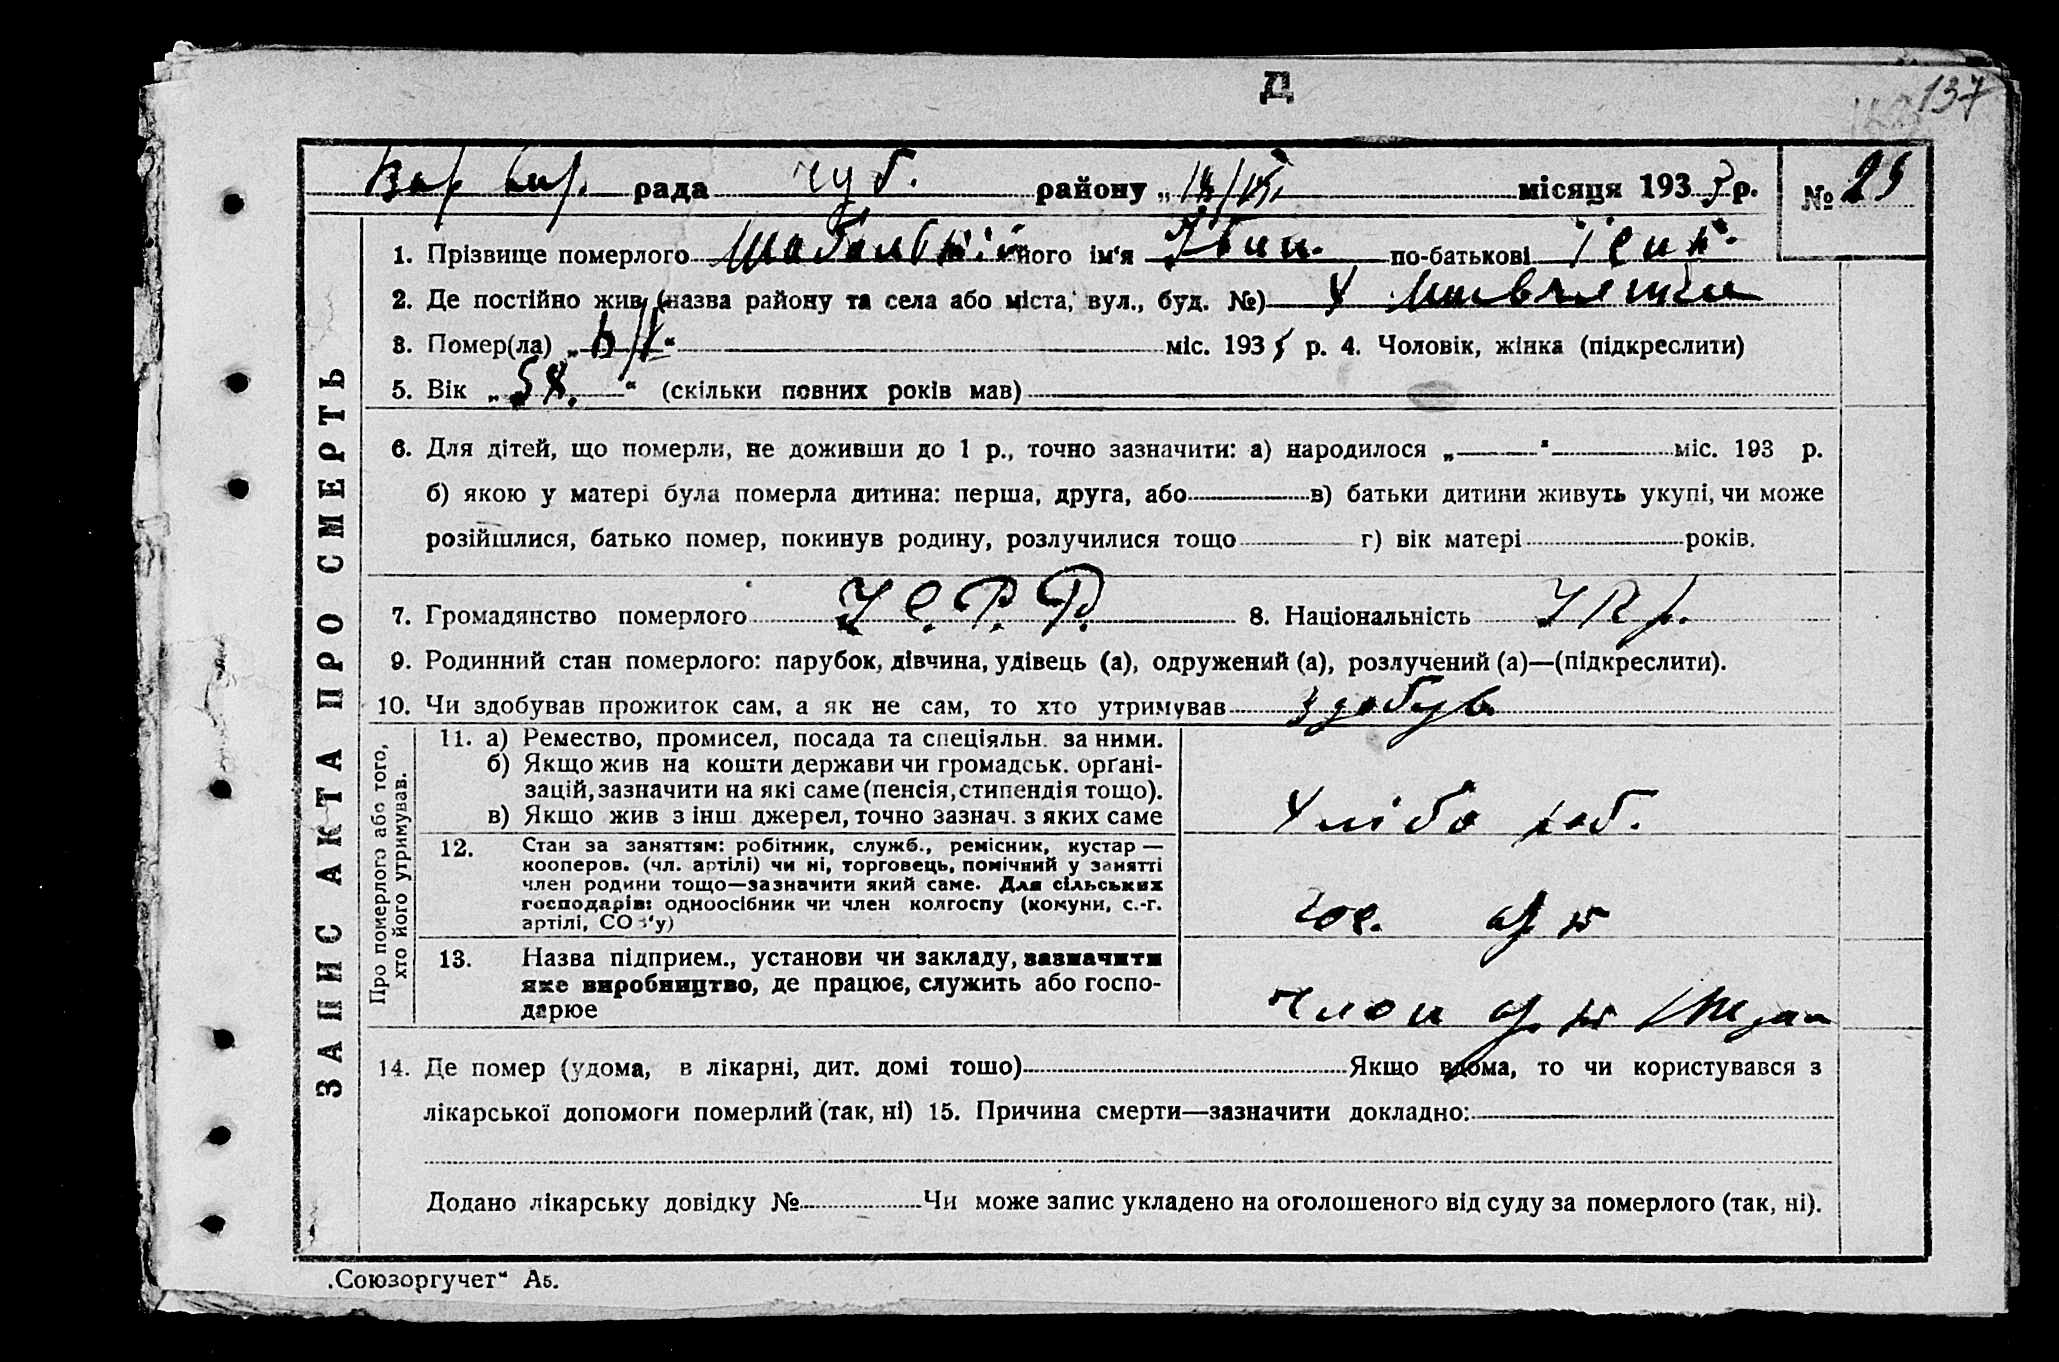 Д
137
рада чуб. району „ місяця 193 р. № 29
1. Прізвище померлого його ім'я Іван. по-батькові
2. Де постійно жив (назва району та села або міста, вул., буд. №) х
3. Помер(ла) „ “ міс. 193 р. 4. Чоловік, жінка (підкреслити)
5. Вік „58.“ (скільки повних років мав)
6. Для дітей, що померли, не доживши до 1 р., точно зазначити: а) народилося „ “ міс. 193 р.
б) якою у матері була померла дитина: перша, друга, або в) батьки дитини живуть укупі, чи може
розійшлися, батько помер, покинув родину, розлучилися тощо г) вік матері років.
7. Громадянство померлого У.С.Р.Р. 8. Національність Укр.
9. Родинний стан померлого: парубок, дівчина, удівець (а), одружений (а), розлучений (а)—(підкреслити).
10. Чи здобував прожиток сам, а як не сам, то хто утримував здобув
11. а) Ремество, промисел, посада та спеціяльн. за ними.
б) Якщо жив на кошти держави чи громадськ. орґані-
зацій, зазначити на які саме (пенсія, стипендія тощо).
в) Якщо жив з інш. джерел, точно зазнач. з яких саме
Хлібо роб.
12. Стан за заняттям: робітник, служб., ремісник, кустар —
кооперов. (чл. артілі) чи ні, торговець, помічний у занятті
член родини тощо—зазначити який саме. Для сільських
господарів: одноосібник чи член колгоспу (комуни, с.-г.
артілі, СОЗ'у)
13. Назва підприєм., установи чи закладу, зазначити
яке виробництво, де працює, служить або госпо-
дарює
Член
14. Де помер (удома, в лікарні, дит. домі тощо) Якщо вдома, то чи користувався з
лікарської допомоги померлий (так, ні) 15. Причина смерти—зазначити докладно:
Додано лікарську довідку № Чи може запис укладено на оголошеного від суду за померлого (так, ні).
ЗАПИС АКТА ПРО СМЕРТЬ
Про померлого або того,
хто його утримував.
„Союзоргучет“ А5.